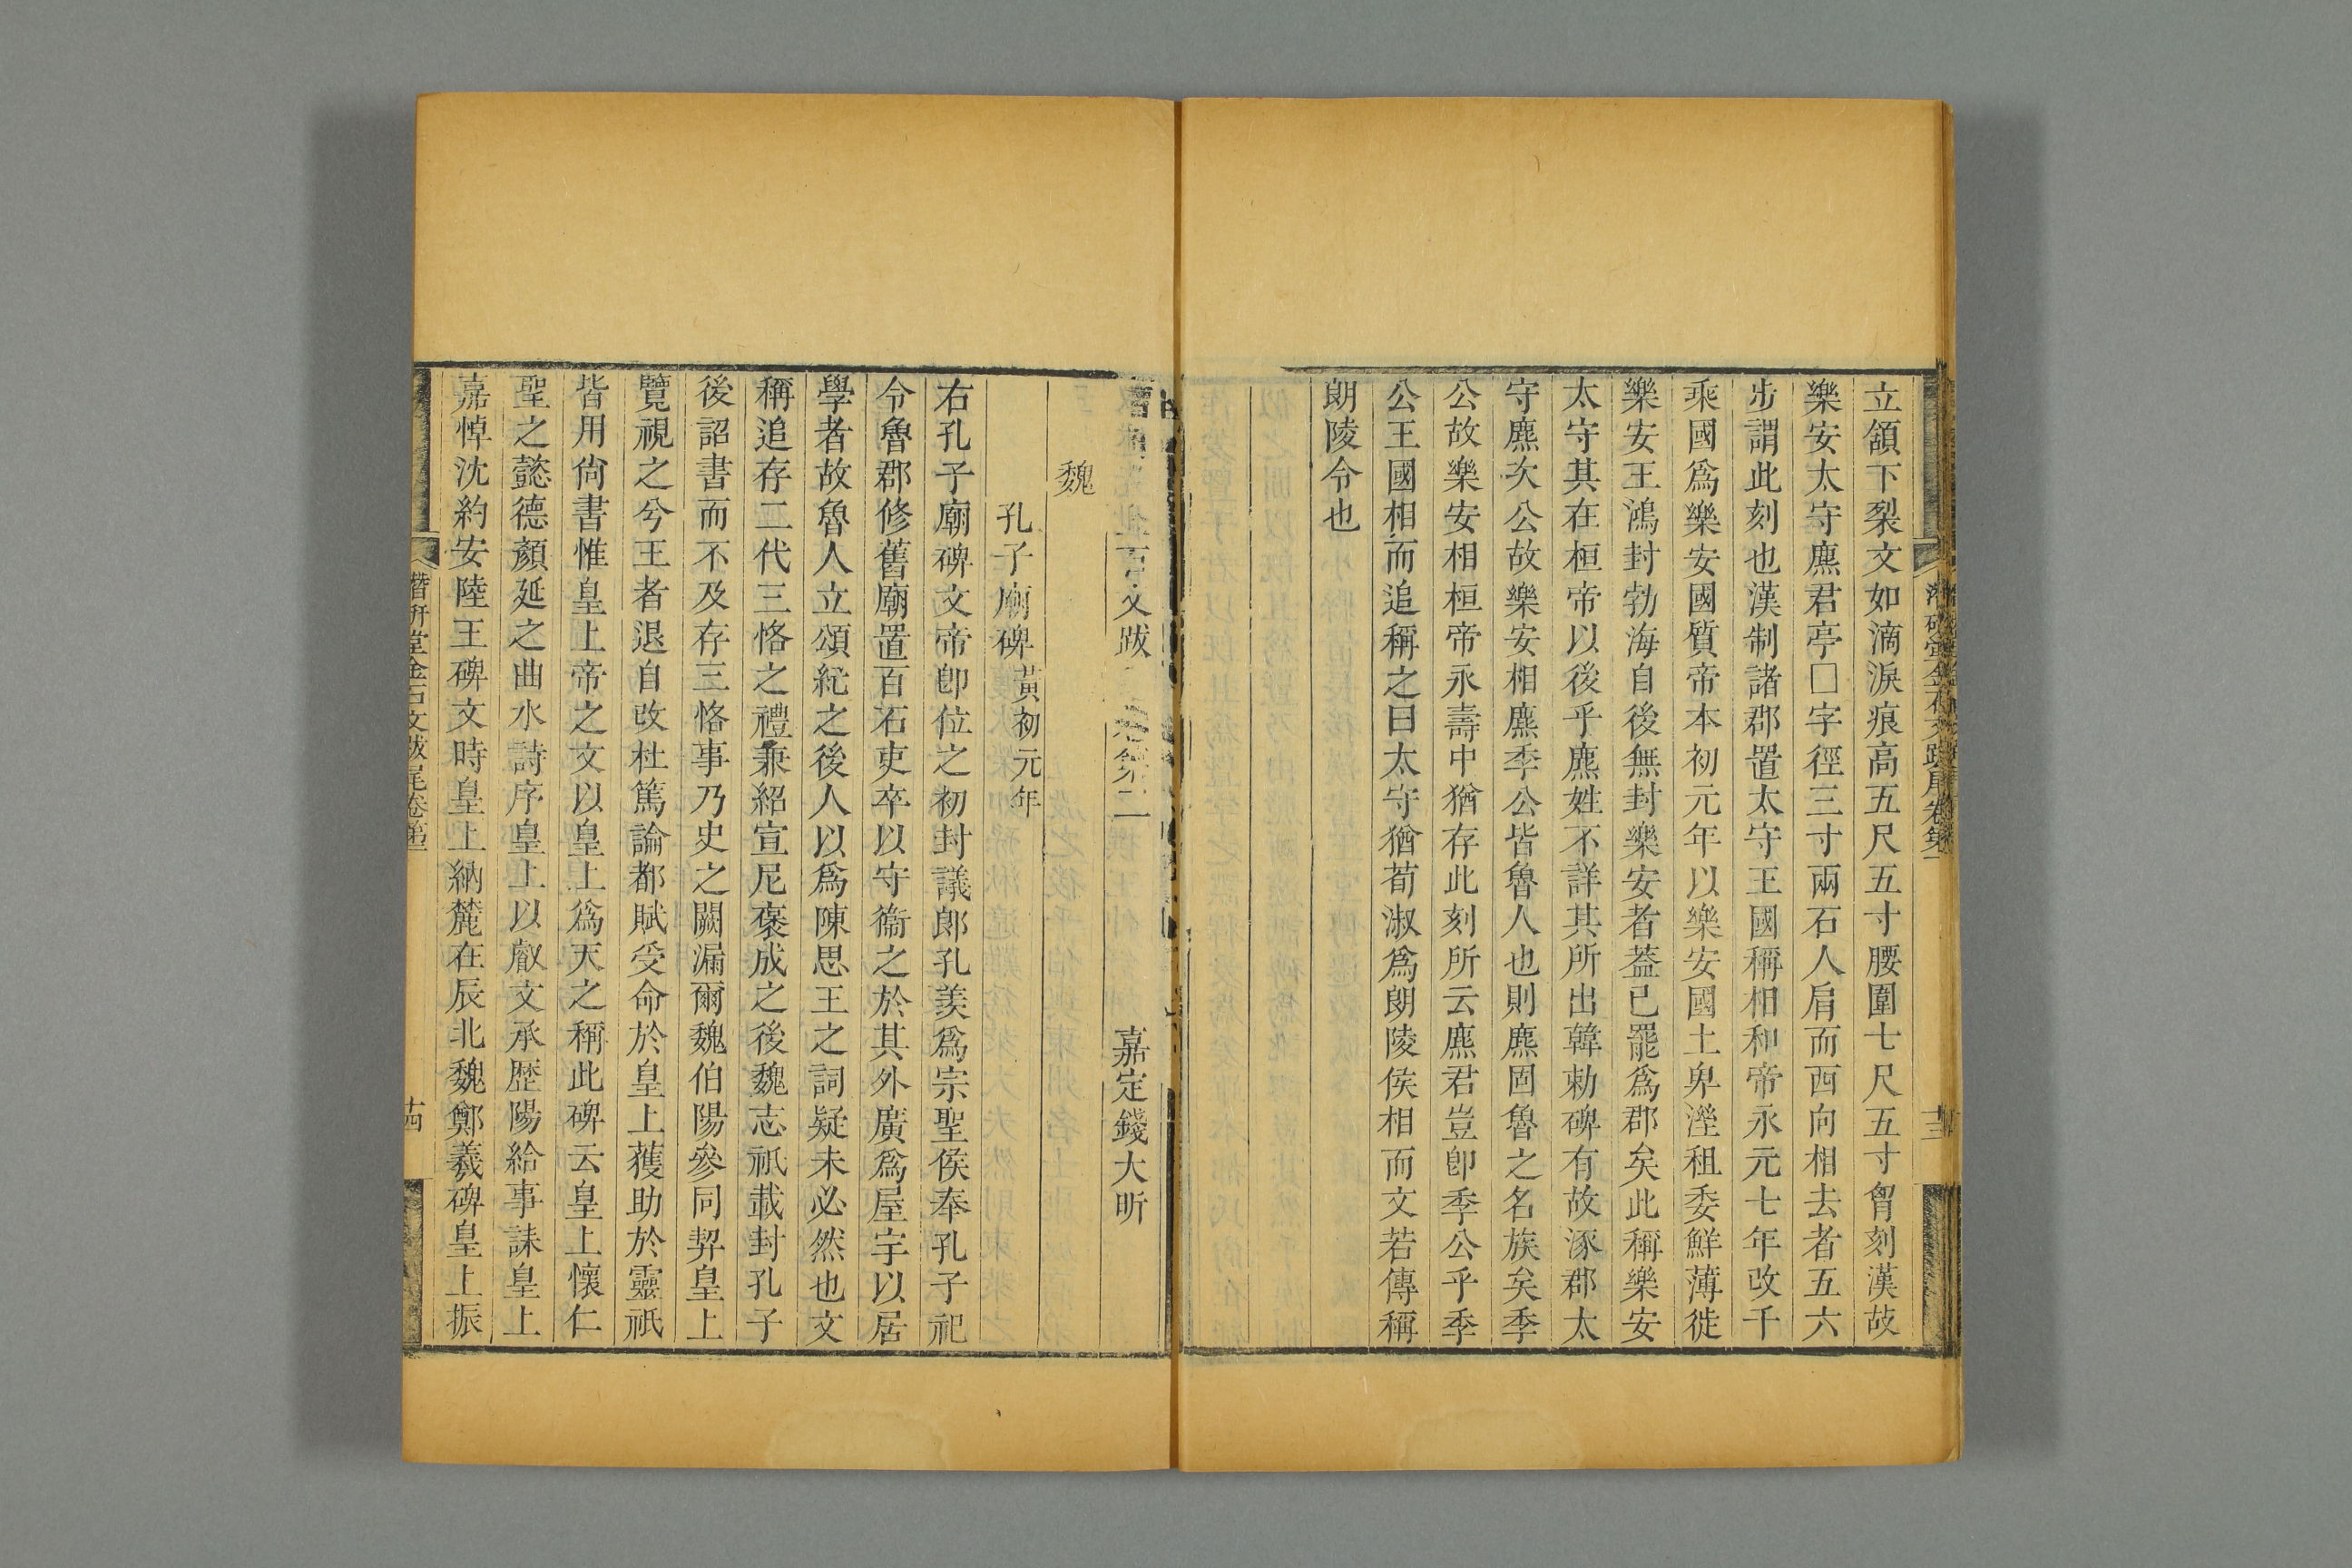 立頷下裂文如滴淚痕高五尺五寸腰圍七尺五寸胷刻漢故
樂安太守麃君亭□字徑三寸兩石人肩而西向相去者五六
步謂此刻也漢制諸郡置太守王國稱相和帝永元七年改千
乘國爲樂安國質帝本初元年以樂安國土卑溼租委鮮薄徙
樂安王鴻封勃海自後無封樂安者葢已罷爲郡矣此稱樂安
太守其在桓帝以後乎麃姓不詳其所出韓勅碑有故涿郡太
守麃次公故樂安相麃季公皆魯人也則麃固魯之名族矣季
公故樂安相桓帝永壽中猶存此刻所云麃君豈卽季公乎季
公王國相而追稱之曰太守猶荀淑爲朗陵侯相而文若傳稱
朗陵令也
文跋 二 嘉定錢大昕
魏
孔子廟碑黃初元年
右孔子廟碑文帝卽位之初封議郎孔羨爲宗聖侯奉孔子祀
令魯郡修舊廟置百石吏卒以守衞之於其外廣爲屋宇以居
學者故魯人立頌紀之後人以爲陳思王之詞疑未必然也文
稱追存二代三恪之禮兼紹宣尼褒成之後魏志祇載封孔子
後詔書而不及存三恪事乃史之闕漏爾魏伯陽參同契皇上
覽視之兮王者退自改杜篤論都賦受命於皇上獲助於靈祇
皆用尙書惟皇上帝之文以皇上爲天之稱此碑云皇上懷仁
聖之懿德顏延之曲水詩序皇上以叡文承歷陽給事誄皇上
嘉悼沈約安陸王碑文時皇上納麓在辰北魏鄭羲碑皇上振
潛研堂金石文跋尾卷第二
十四